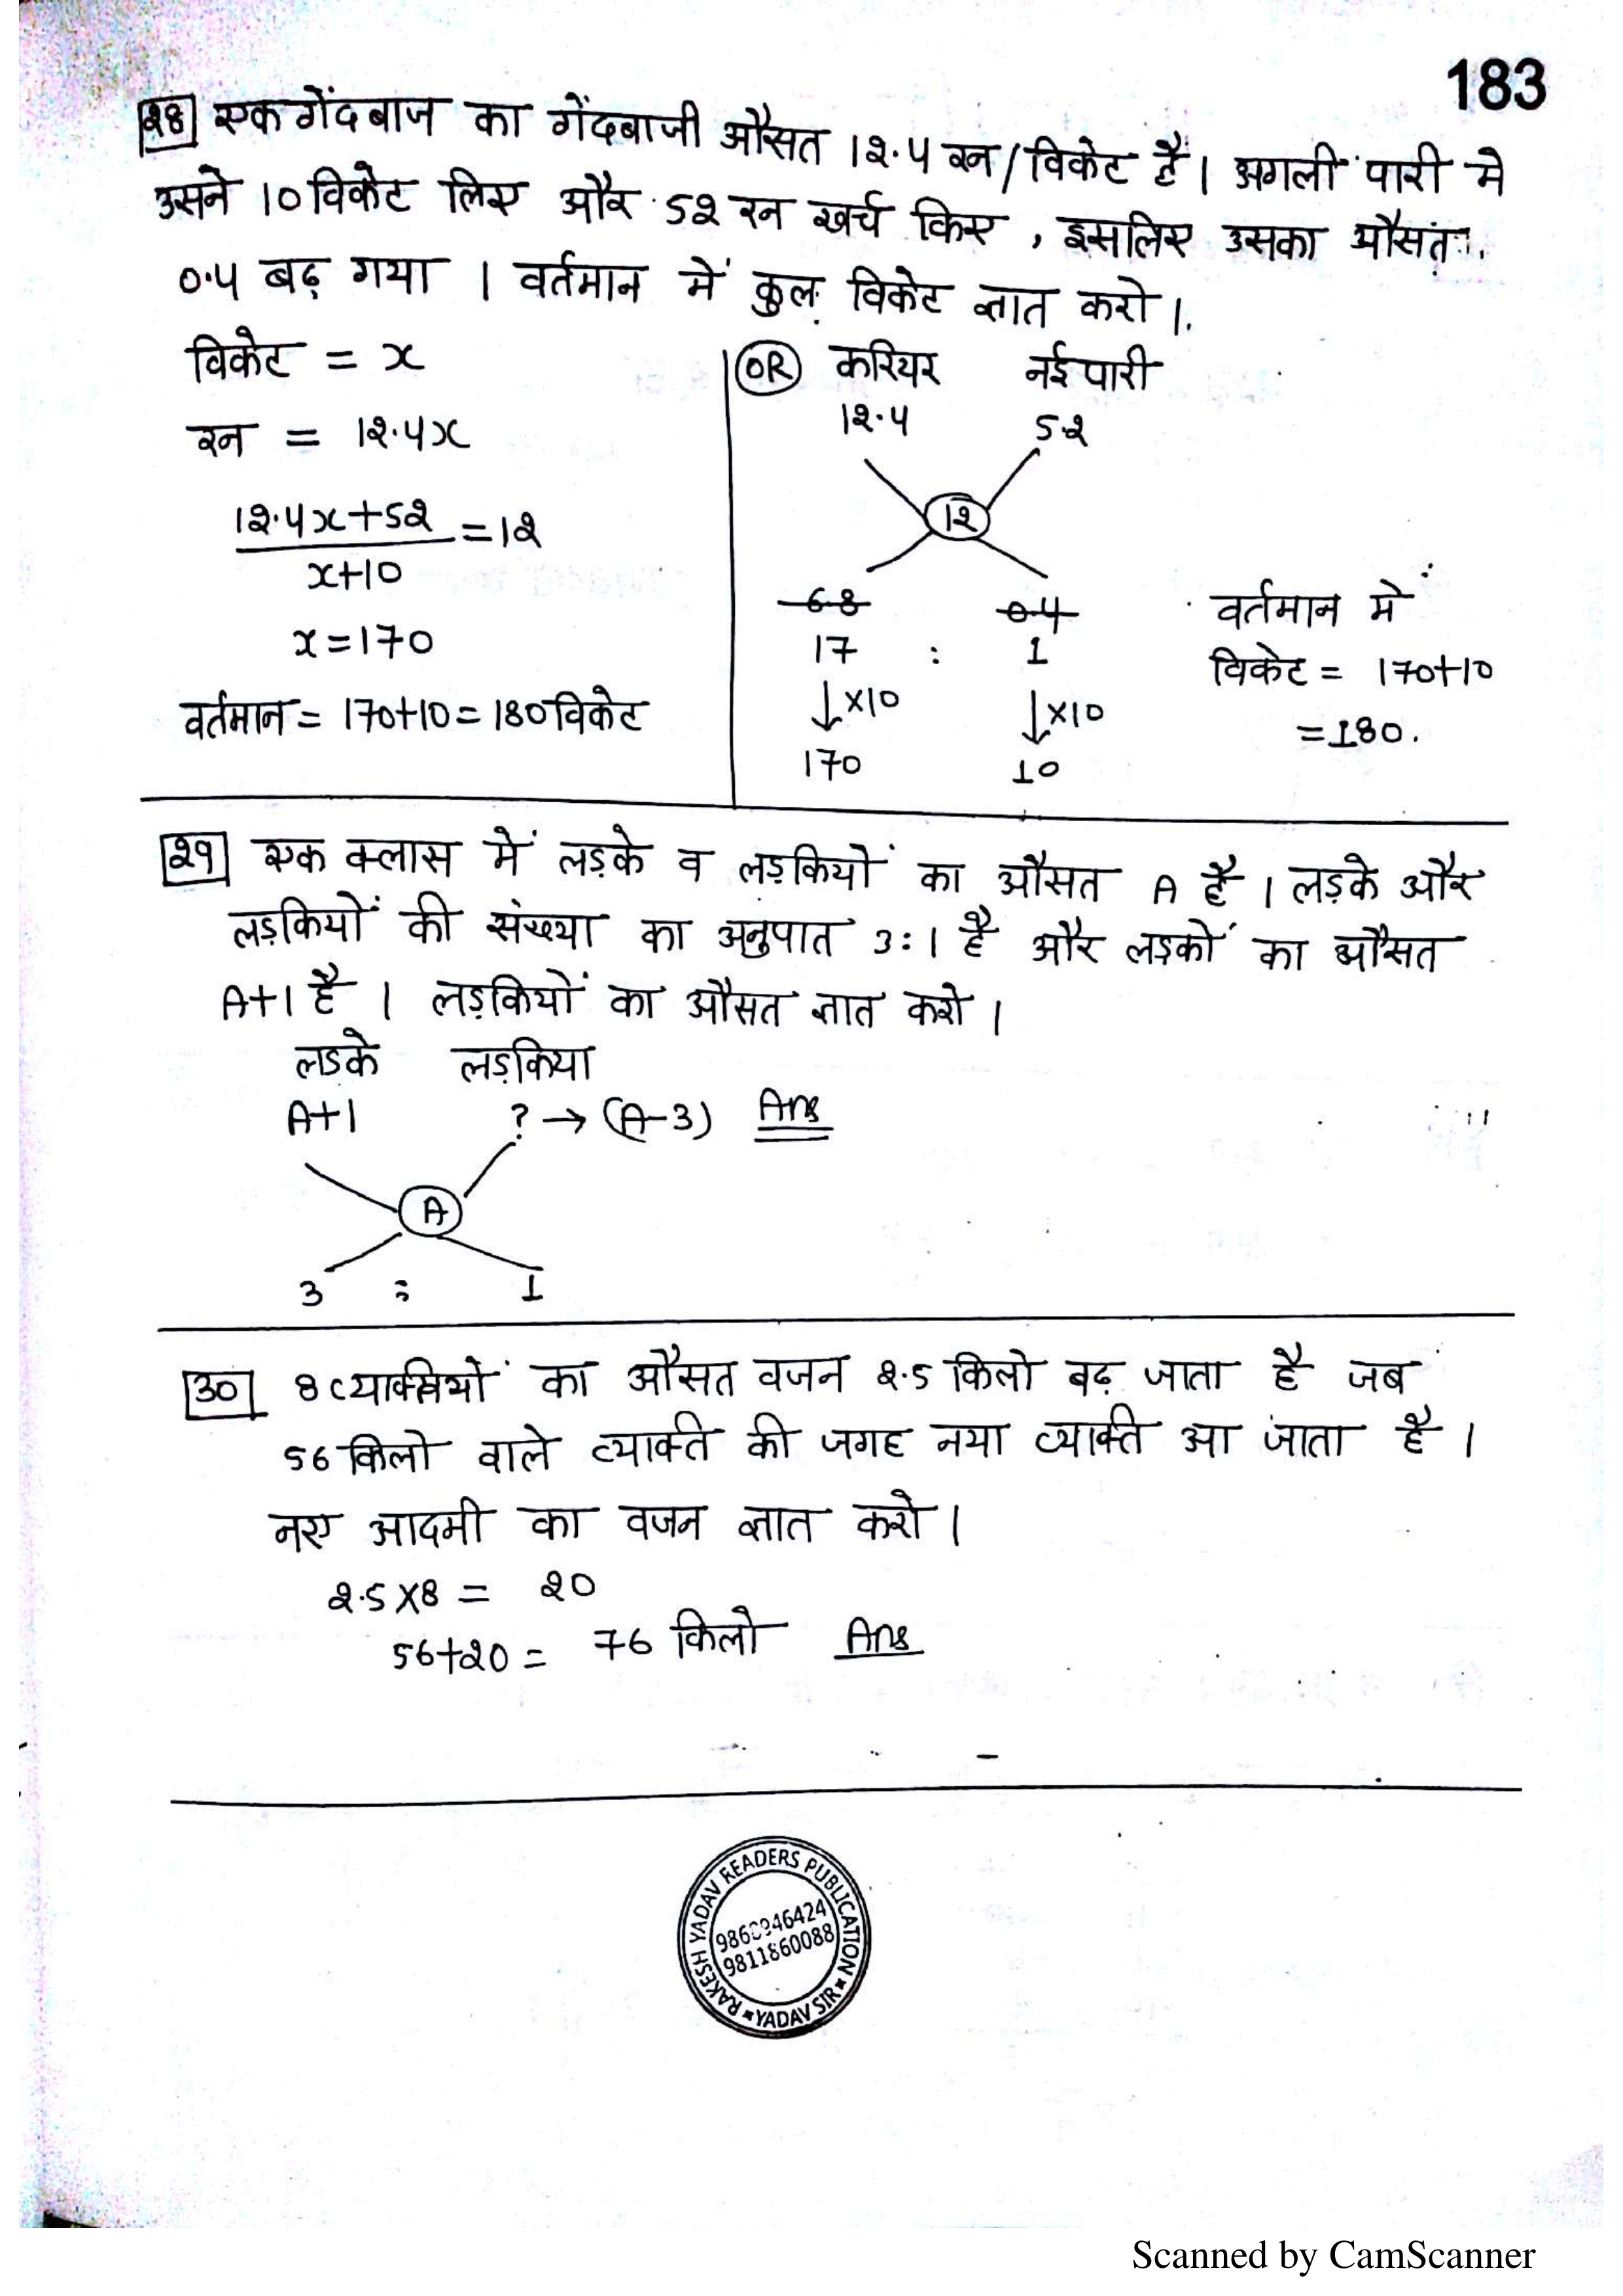 183
28 एक गेंदबाज का गेंदबाजी औसत 12.4 रन/विकेट है। अगली पारी मे
उसने 10 विकेट लिए और 52 रन खर्च किए, इसलिए उसका औसत
0.4 बढ़ गया । वर्तमान में कुल विकेट ज्ञात करो।
विकेट = x
रन = 12.4x
12.4x+52 / x+10 = 12
x=170
वर्तमान = 170+10 = 180 विकेट
OR करियर नई पारी
12.4 5.2
12
6.8 0.4
17 : 1
↓×10 ↓×10
170 10
वर्तमान में
विकेट = 170+10
=180.
29 एक क्लास में लड़के व लड़कियों का औसत A है । लड़के और
लड़कियों की संख्या का अनुपात 3:1 है और लड़कों का औसत
A+1 है । लड़कियों का औसत ज्ञात करो ।
लडके लड़किया
A+1 ? → (A-3) Ans
A
3 : 1
30 8 व्यक्तियों का औसत वजन 2.5 किलो बढ़ जाता है जब
56 किलो वाले व्यक्ति की जगह नया व्यक्ति आ जाता है ।
नए आदमी का वजन ज्ञात करो ।
2.5×8 = 20
56+20 = 76 किलो Ans
RAKESH YADAV READERS PUBLICATION
9811860088
YADAV SIR
Scanned by CamScanner